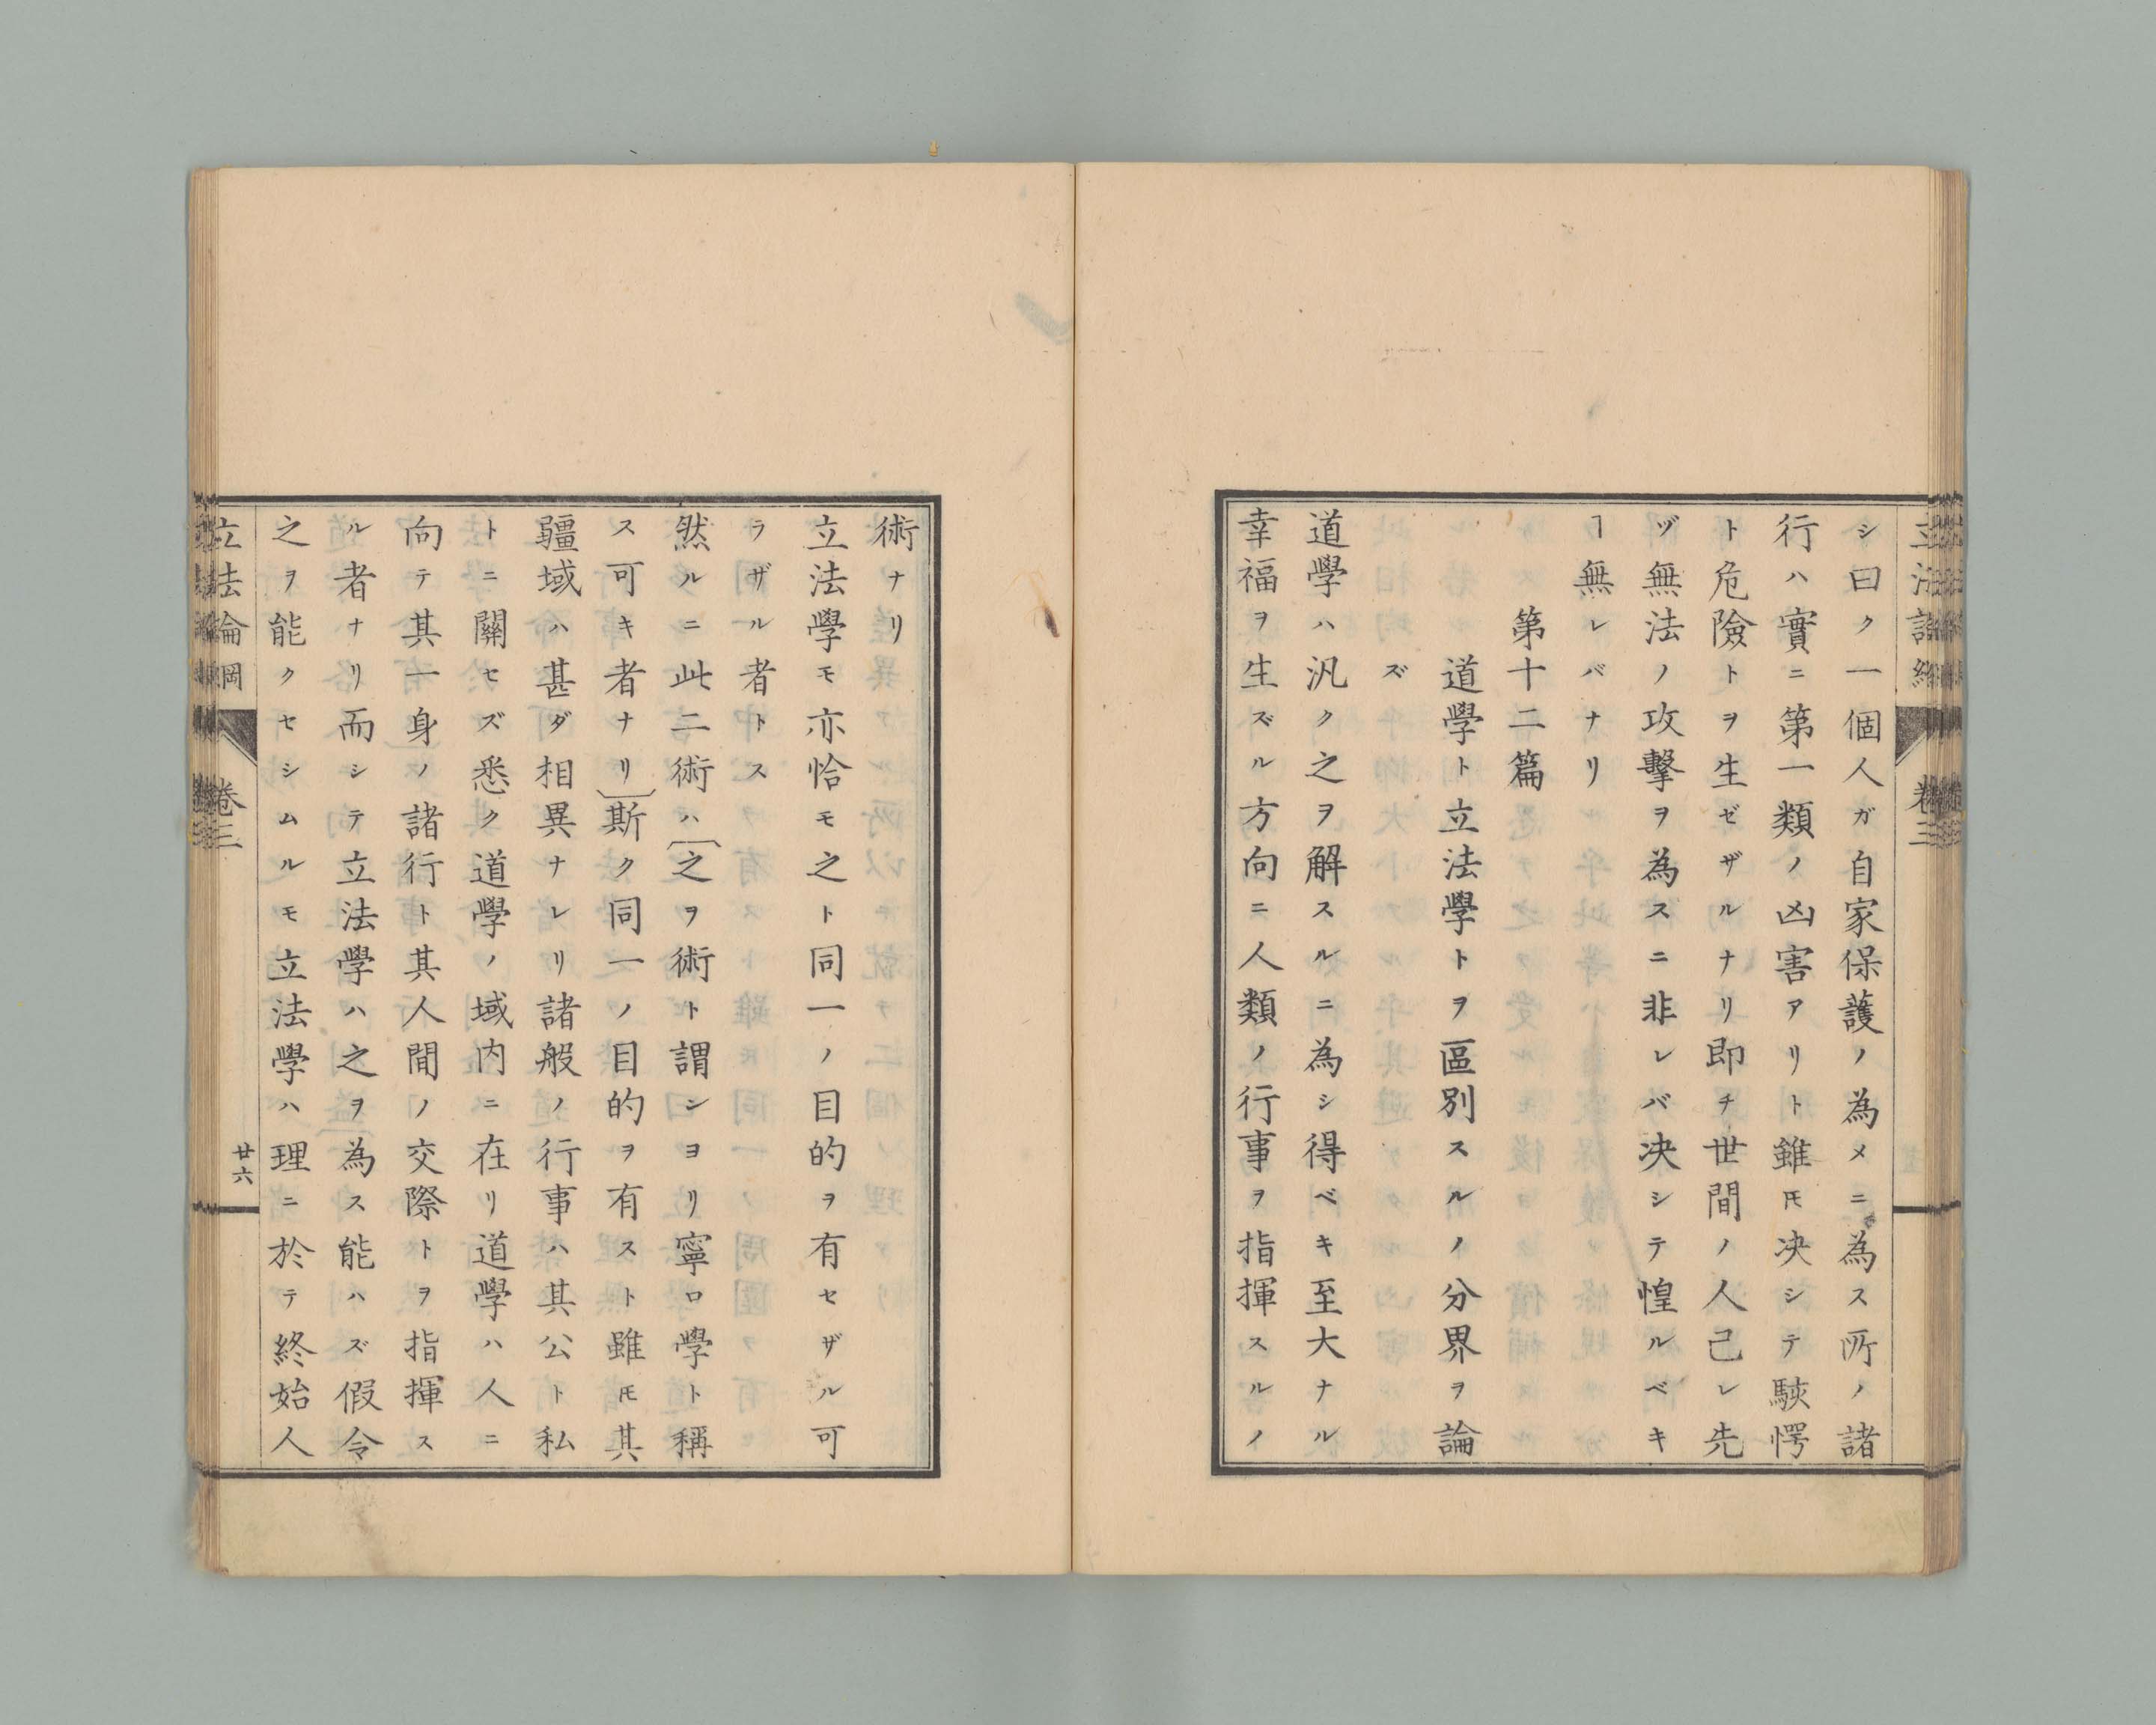 シ曰ク一個人ガ自家保護ノ為メニ為ス所ノ諸
行ハ實ニ第一類ノ凶害アリト雖𪜈决シテ駭愕
ト危險トヲ生ゼザルナリ即チ世間ノ人己レ先
ヅ無法ノ攻擊ヲ為スニ非レバ决シテ惶ルベキ
ヿ無レバナリ
第十二篇
道學ト立法學トヲ區別スルノ分界ヲ論
ズ
道學ハ汎ク之ヲ解スルニ為シ得ベキ至大ナル
幸福ヲ生ズル方向ニ人類ノ行事ヲ指揮スルノ
術ナリ
立法學モ亦恰モ之ト同一ノ目的ヲ有セザル可
ラザル者トス
然ルニ此二術ハ〔之ヲ術ト謂シヨリ寧ロ學ト稱
ス可キ者ナリ〕斯ク同一ノ目的ヲ有スト雖𪜈其
疆域ハ甚ダ相異ナレリ諸般ノ行事ハ其公ト私
トニ關セズ悉ク道學ノ域内ニ在リ道學ハ人ニ
向テ其一身ノ諸行ト其人間ノ交際トヲ指揮ス
ル者ナリ而シテ立法學ハ之ヲ為ス能ハズ假令
之ヲ能クセシムルモ立法學ハ理ニ於テ終始人
立法論綱 卷三 廿六